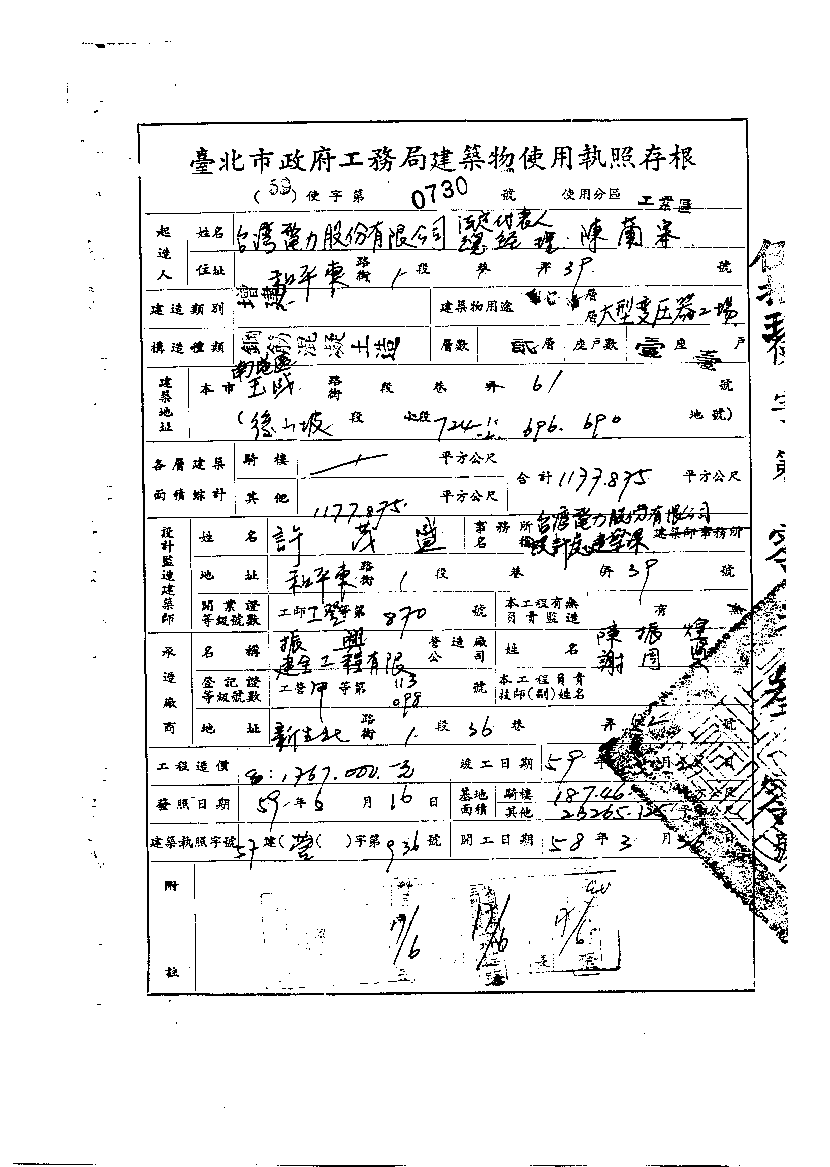 臺北市政府工務局建築物使用執照存根
(59)使字第 0730 號 使用分區 工業區
起造人 姓名 台灣電力股份有限公司 法定代表人 總經理 陳蘭皋
住址 和平東路街 1 段 巷 弄 39 號
建造類別 增建 建築物用途 層 層 大型变压器工場
構造種類 鋼筋混凝土造 層數 貳層 座戶數 壹座 壹戶
建築地址 本市 南港區 玉成 路街 段 巷 弄 61 號
(後山坡 段 小段 724 696. 690 地號)
各層建築面積綜計 騎樓 平方公尺 合計 1177.875 平方公尺
其他 1177.875. 平方公尺
設計監造建築師 姓名 許茂盛 事務所名稱 台灣電力股份有限公司 建築師事務所
地址 和平東路街 1 段 巷 弄 39 號
開業證等級號數 工師 工登字第 870 號 本工程有無負責監造 有 無
承造廠商 名稱 振興 建全工程有限 營造廠公司 姓名 陳振煌 謝周
登記證等級號數 工營 甲 等第 113 098 號 本工程負責技師(副)姓名
地址 新生北路街 1 段 36 巷 弄 號
工程造價 1767.000.元 竣工日期 59 年 月 日
發照日期 59 年 6 月 16 日 基地面積 騎樓 187.46 平方公尺
其他 平方公尺
建築執照字號 57 建(營)字第 936 號 開工日期 58 年 3 月
附註